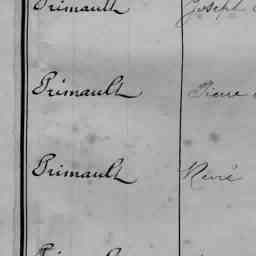 Primault Joseph
Primault Pierre
Primault René